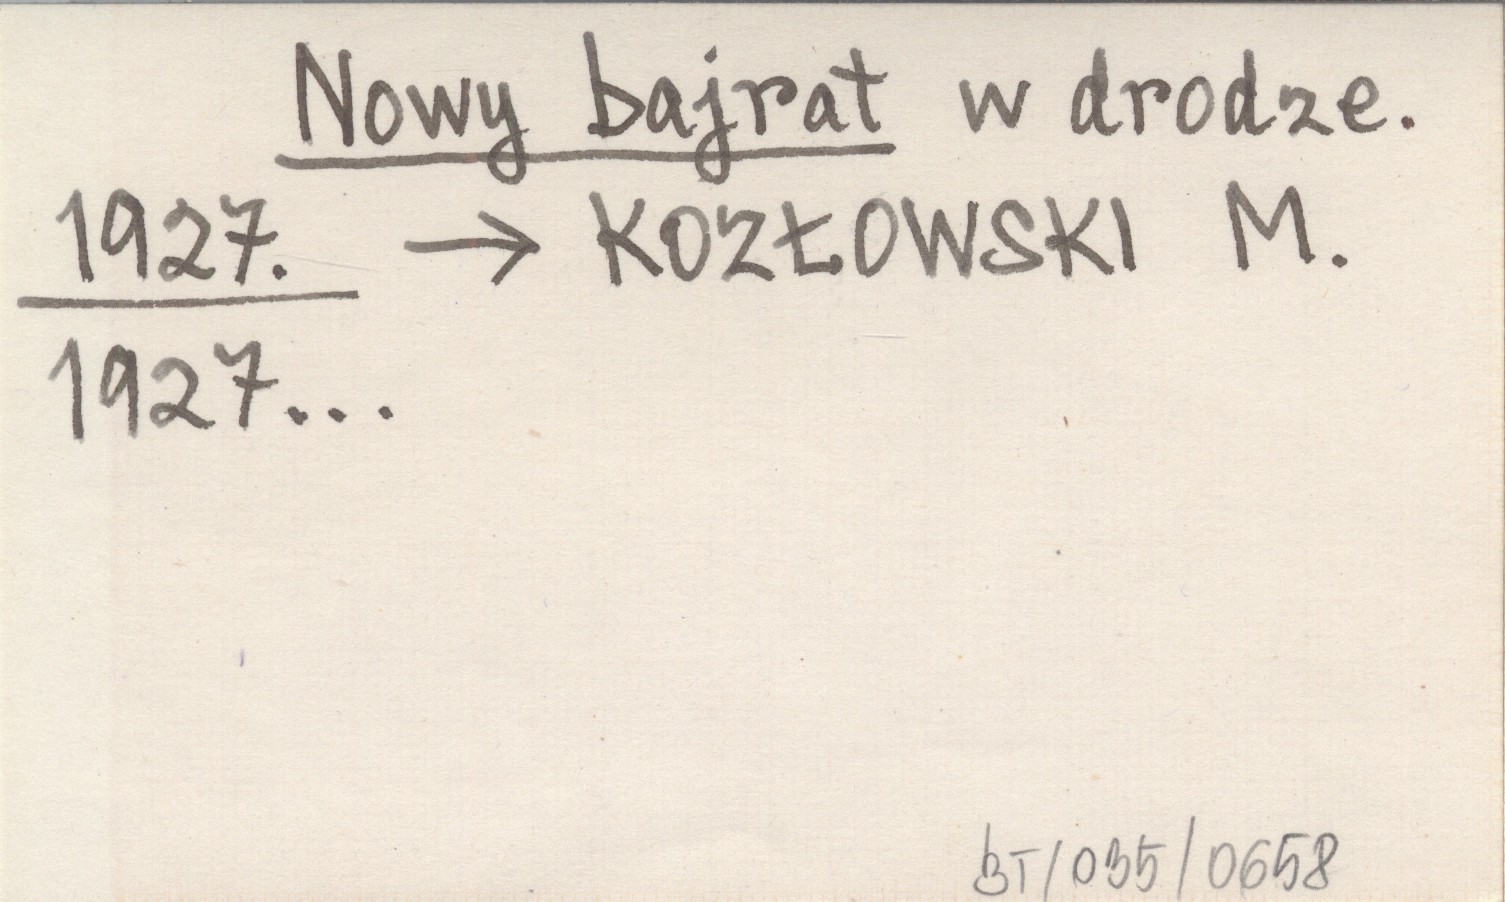 Nowy bajrat w drodze.
1927. → KOZŁOWSKI M.
1927...
BT/035/0658